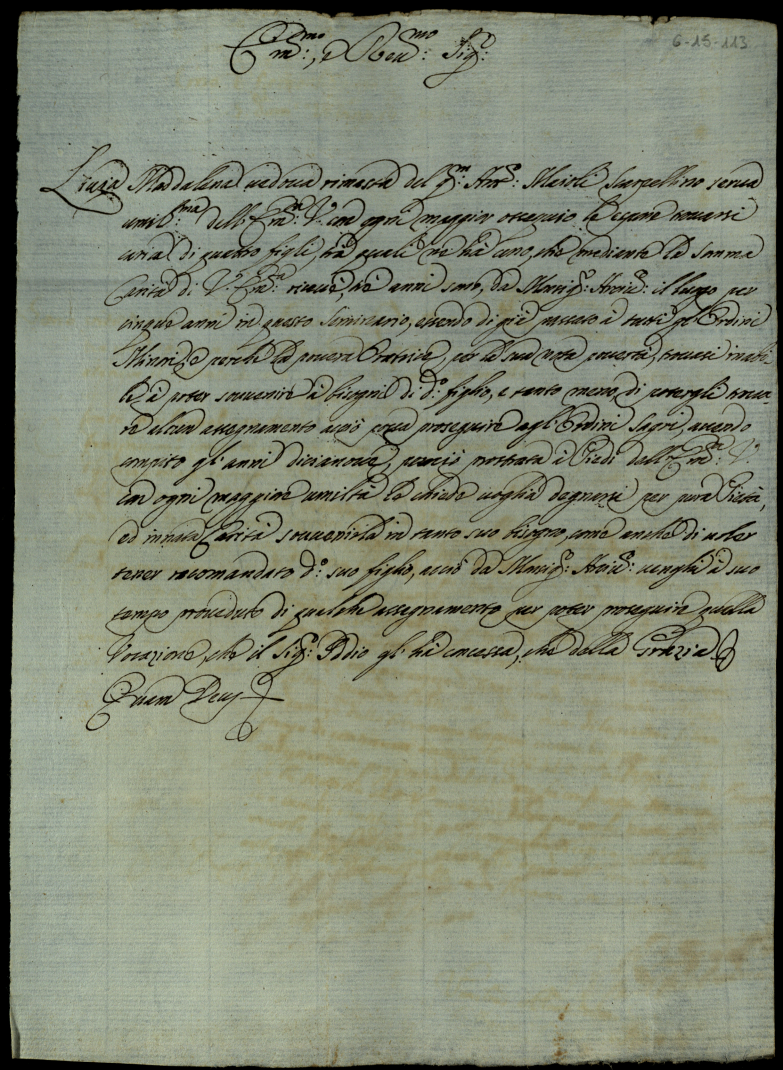 6-15-113
Em.mo, e Reu.mo Sig.r
Luzia Maddalena uedoua rimasta del q.m Ant.o Meioli Scarpellino serua
umil.ma dell'Em.a V.a con ogni maggior ossequio le espone trouarsi
carica di quattro figli, trà quali ne hà uno, che mediante la somma
Carità di V.a Em.a riceuè, trè anni sono, da Monsig.r Arciu.o il luogo per
cinque anni in questo Seminario, essendo di già passato à tutti gl'Ordini
Minori, e perche la pouera Oratrice, per la sua nota pouertà, trouasi inabi
le à poter souuenire à bisogni di d.o figlio, e tanto meno, di potergli troua-
re alcun assegnamento acciò possa proseguire agl'Ordini Sagri, auendo
compito gl'anni dicianoue, perciò prostrata à Piedi dell'Em.a V.a
con ogni maggiore umiltà la chiede uoglia degnarsi per pura Pietà,
ed innata Carità souuenirla in tanto suo bisogno, come anche di uoler
tener racomandato d.o suo figlio, acciò da Monsig.r Arciu.o uenghi à suo
tempo proueduto di qualche assegnamento per poter proseguire quella
Vocazione, che il Sig.r Iddio gl'hà concessa, che della Grazia
Quam Deus